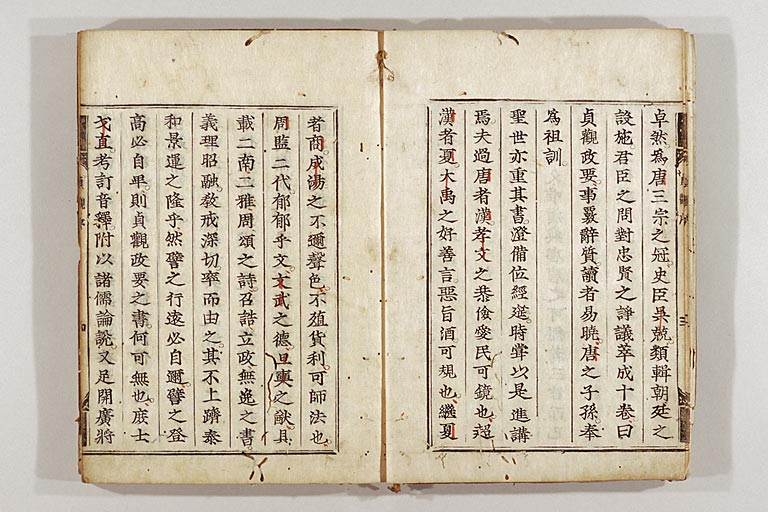 卓然爲唐三宗之冠史臣吳兢類輯朝廷之
設施君臣之問對忠賢之諍議萃成十卷曰
貞觀政要事覈辭質讀者易曉唐之子孫奉
爲祖訓
聖世亦重其書澄備位經筵時嘗以是進講
焉夫過唐者漢孝文之恭儉愛民可鏡也超
漢者夏大禹之好善言惡旨酒可規也繼夏
者商成湯之不邇聲色不殖貨利可師法也
周監二代郁郁乎文文武之德旦奭之猷具
載二南二雅周頌之詩召誥立政無逸之書
義理昭融敎戒深切率而由之其不上躋泰
和景運之隆乎然譬之行遠必自邇譬之登
高必自卑則貞觀政要之書何可無也庶士
戈直考訂音釋附以諸儒論說又足開廣將